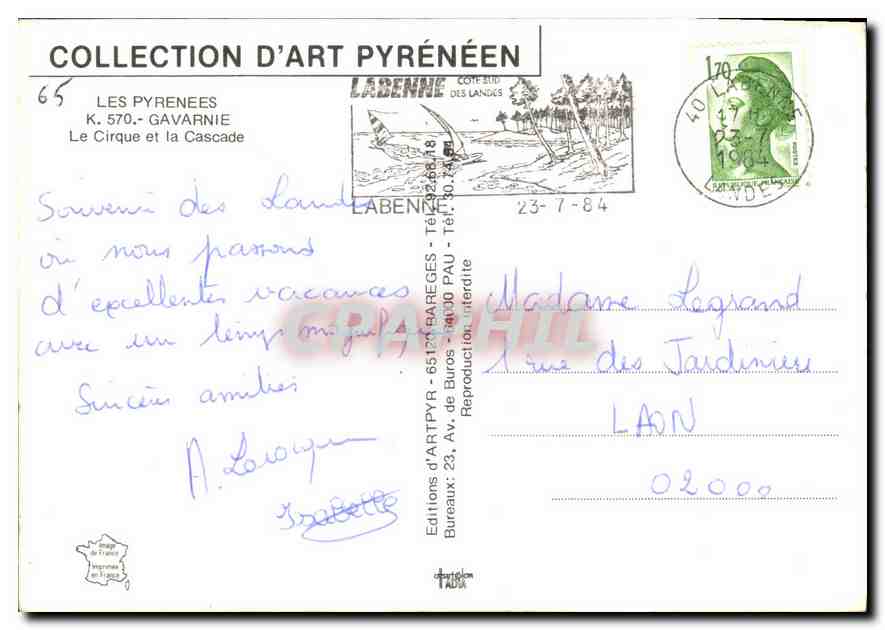 COLLECTION D'ART PYRÉNÉEN
65
LES PYRENEES
K. 570.- GAVARNIE
Le Cirque et la Cascade
LABENNE COTE SUD
DES LANDES
LABENNE 23-7-84
1,70
40 LABENNE
17
23-7
1984
LANDES
POSTES
REPUBLIQUE FRANÇAISE
Souvenir des Landes
où nous passons
d'excellentes vacances
avec un temps magnifique
Sincères amitiés
A. Larocque
Isabelle
Editions d'ARTPYR - 65120 BAREGES - Tél. 92.68.18
Bureaux: 23, Av. de Buros - 64000 PAU - Tél. 30.74.64
Reproduction interdite
Madame Legrand
1 rue des Jardiniers
LAON
02000
CPAPHIL
Image
de France
Imprimée
en France